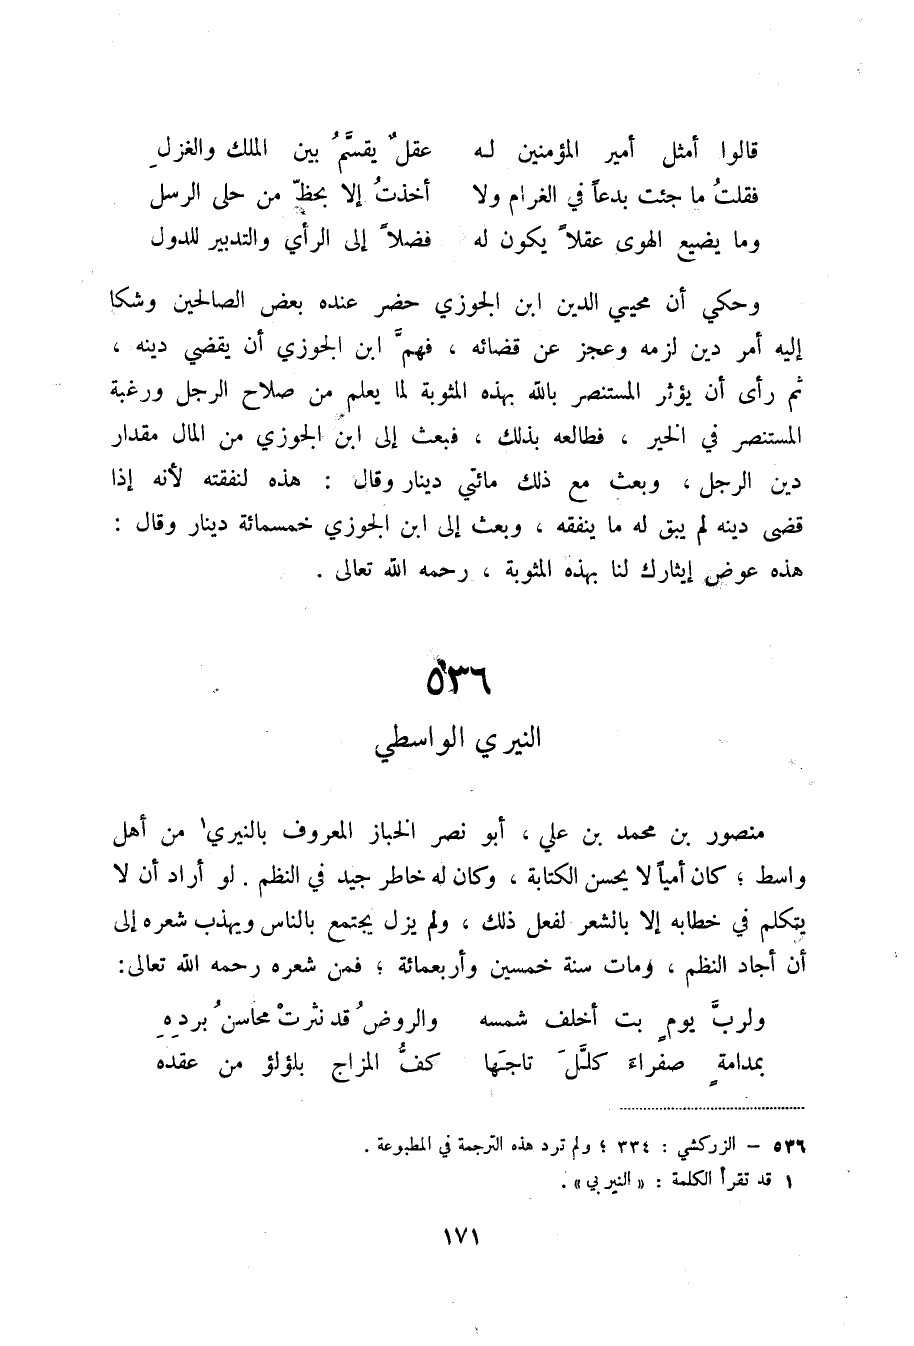 قالوا أمثل أمير المؤمنين له عقلٌ يقسَّمُ بين الملك والغزلِ
فقلتُ ما جئت بدعاً في الغرام ولا أخذتُ إلا بحظّ من حلى الرسل
وما يضيع الهوى عقلاً يكون له فضلاً إلى الرأي والتدبير للدول
وحكي أن محيي الدين ابن الجوزي حضر عنده بعض الصالحين وشكا
إليه أمر دين لزمه وعجز عن قضائه ، فهمَّ ابن الجوزي أن يقضي دينه ،
ثم رأى أن يؤثر المستنصر بالله بهذه المثوبة لما يعلم من صلاح الرجل ورغبة
المستنصر في الخير ، فطالعه بذلك ، فبعث إلى ابن الجوزي من المال مقدار
دين الرجل ، وبعث مع ذلك مائتي دينار وقال : هذه لنفقته لأنه إذا
قضى دينه لم يبق له ما ينفقه ، وبعث إلى ابن الجوزي خمسمائة دينار وقال :
هذه عوض إيثارك لنا بهذه المثوبة ، رحمه الله تعالى .
٥٣٦
النيري الواسطي
منصور بن محمد بن علي ، أبو نصر الخباز المعروف بالنيري١ من أهل
واسط ؛ كان أمياً لا يحسن الكتابة ، وكان له خاطر جيد في النظم . لو أراد أن لا
يتكلم في خطابه إلا بالشعر لفعل ذلك ، ولم يزل يجتمع بالناس ويهذب شعره إلى
أن أجاد النظم ، ومات سنة خمسين وأربعمائة ؛ فمن شعره رحمه الله تعالى:
ولربَّ يومٍ بت أخلف شمسه والروضُ قد نثرتْ محاسنُ بردِهِ
بمدامةٍ صفراءَ كلَّلَ تاجَها كفُّ المزاج بلؤلؤ من عقده
٥٣٦ – الزركشي : ٣٣٤ ؛ ولم ترد هذه الترجمة في المطبوعة .
١ قد تقرأ الكلمة : « النيربي» .
١٧١